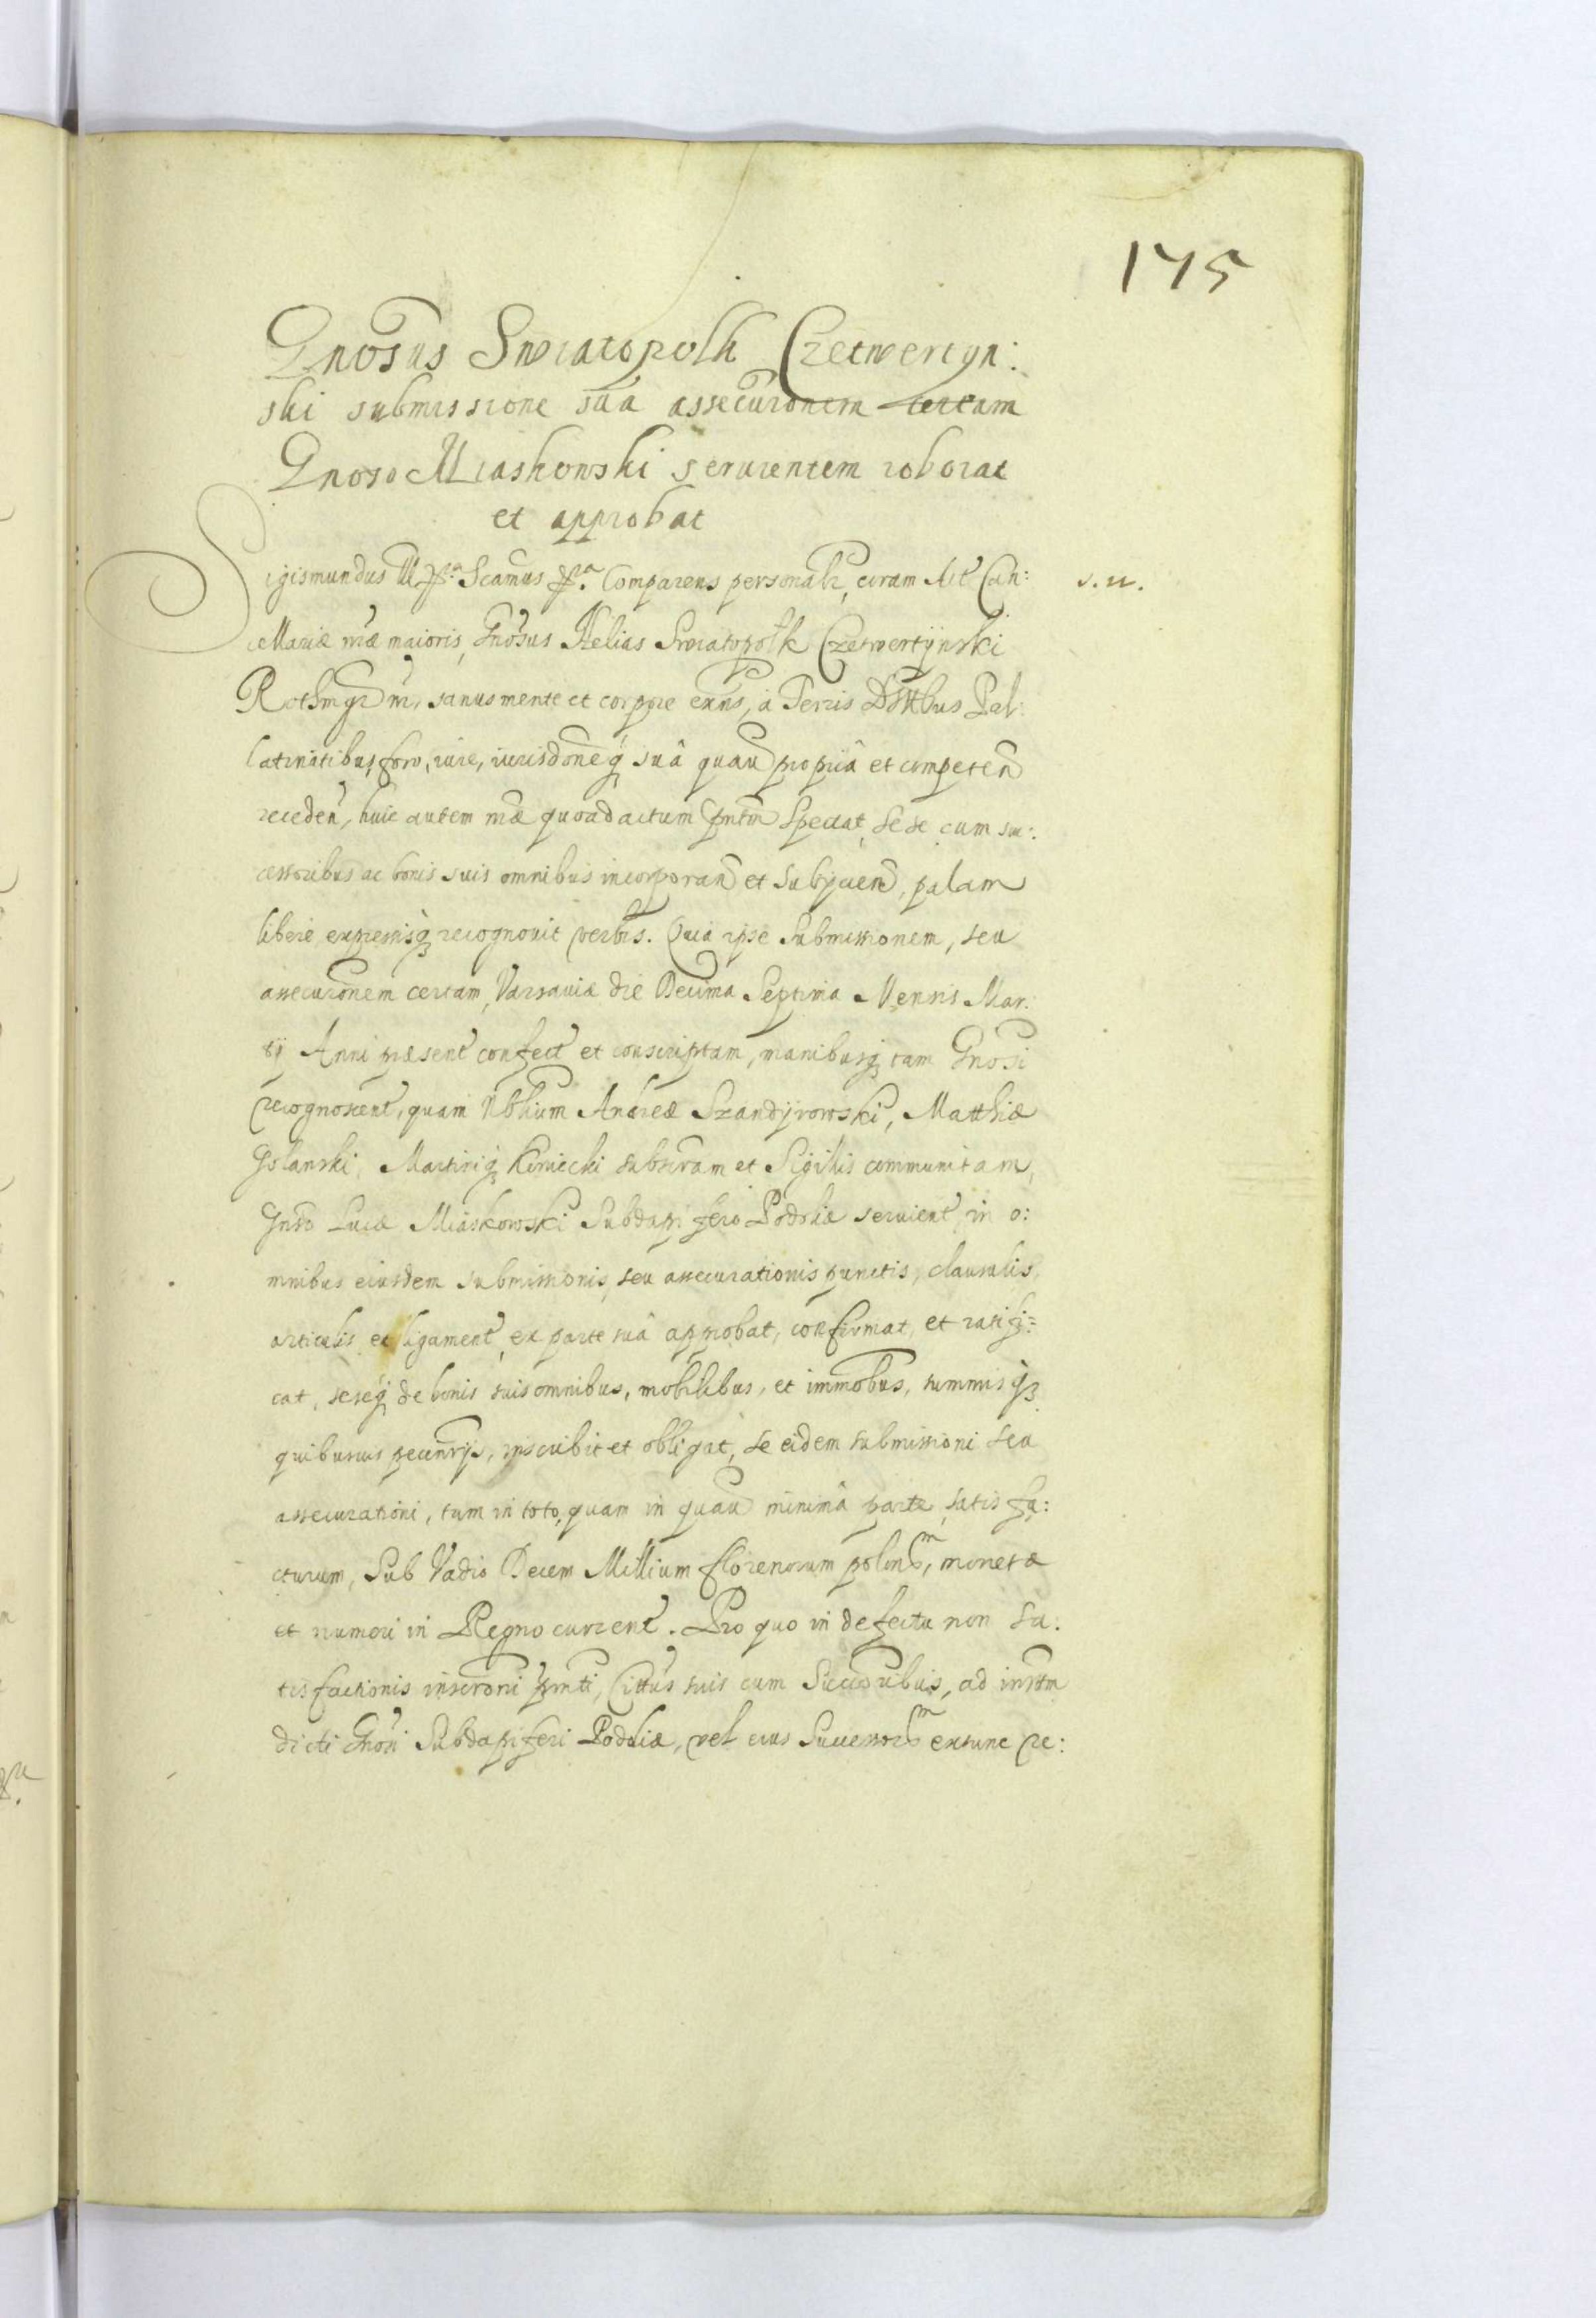 175
Gnosus Swiatopolk Czetwertyn:
ski submissione sua assecuronem certam
Gnoso Miaskowski seruientem roborat
et approbat
Sigismundus III etc. Scamus etc. Comparens personalr, coram Actis Can: s. n.
cellariæ nræ maioris, Gnosus Helias Swiatopolk Czetwertÿnski
Rothmgr nr, sanus mente et corpore exns, à Terris Disttbus Pal:
latinatibus, foro, iure, iurisdoneq suâ quauis propriâ et competen
receden, huic autem nræ quoad actum pntem spectat, sese cum suc:
cessoribus ac bonis suis omnibus incorporan et subijcien, palam
libere expressisq recognouit verbis. Quia ipse submissionem, seu
assecuronem certam, Varsauiæ die Decima Septima Mensis Mar:
tij Anni præsent confect et conscriptam, manibusq tam Gnosi
recognoscent, quam Nbilium Andreæ Szandÿrowski, Matthiæ
Golanski, Martiniq Koniecki subscram et Sigillis communitam,
Gnso Lucæ Miaskowski Subdapifero Podoliæ seruient, in o:
mnibus eiusdem submissionis, seu assecurationis punctis, clausulis,
articulis et ligament, ex parte suâ approbat, confirmat, et ratifi=
cat, seseq de bonis suis omnibus, mobilibus, et immobus, summisq
quibusuis pecunrijs, inscribit et obligat, se eidem submissioni seu
assecurationi, tum in toto, quam in quauis minimâ parte, satis fa:
cturum, Sub Vadio Decem Millium florenorum polonm, monetæ
et numeri in Regno current. Pro quo in defectu non sa:
tisfactionis inscroni pnti, Cittus suis cum Succoribus, ad instm
dicti Gnosi Subdapiferi Podoliæ, vel eius Successorm extunc re: